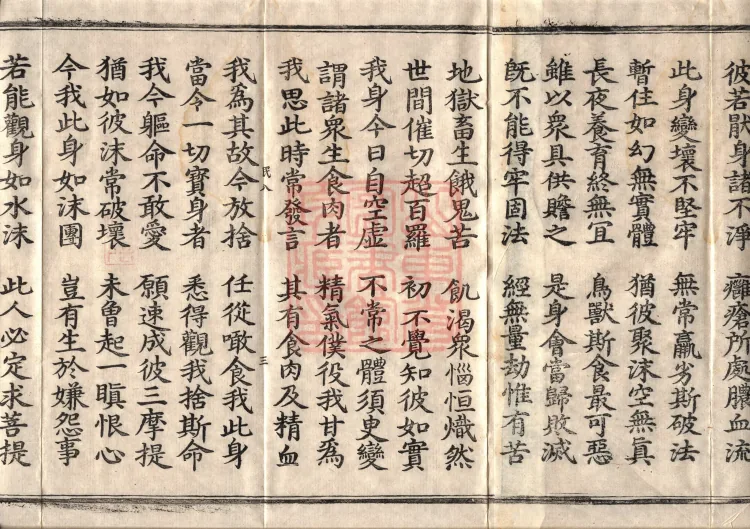 彼若骸身諸不淨 癰瘡所處膿血流
此身變壞不堅牢 無常羸劣斯破法
暫住如幻無實體 猶彼聚沫空無眞
長夜養育終無冝 鳥獸斯食最可惡
雖以衆具供贍之 是身會當歸敗滅
旣不能得牢固法 經無量劫惟有苦
地獄畜生餓鬼苦 飢渴衆惱恒熾然
世間催切超百羅 初不覺知彼如實
我身今日自空虛 不常之體須臾變
謂諸衆生食肉者 精氣僕役我甘爲
我思此時常發言 其有食肉及精血
三
我爲其故今放捨 任從噉食我此身
當令一切寳身者 悉得觀我捨斯命
我今軀命不敢愛 願速成彼三摩提
猶如彼沫常破壞 未曾起一瞋恨心
今我此身如沫團 豈有生於嫌怨事
若能觀身如水沫 此人必定求菩提